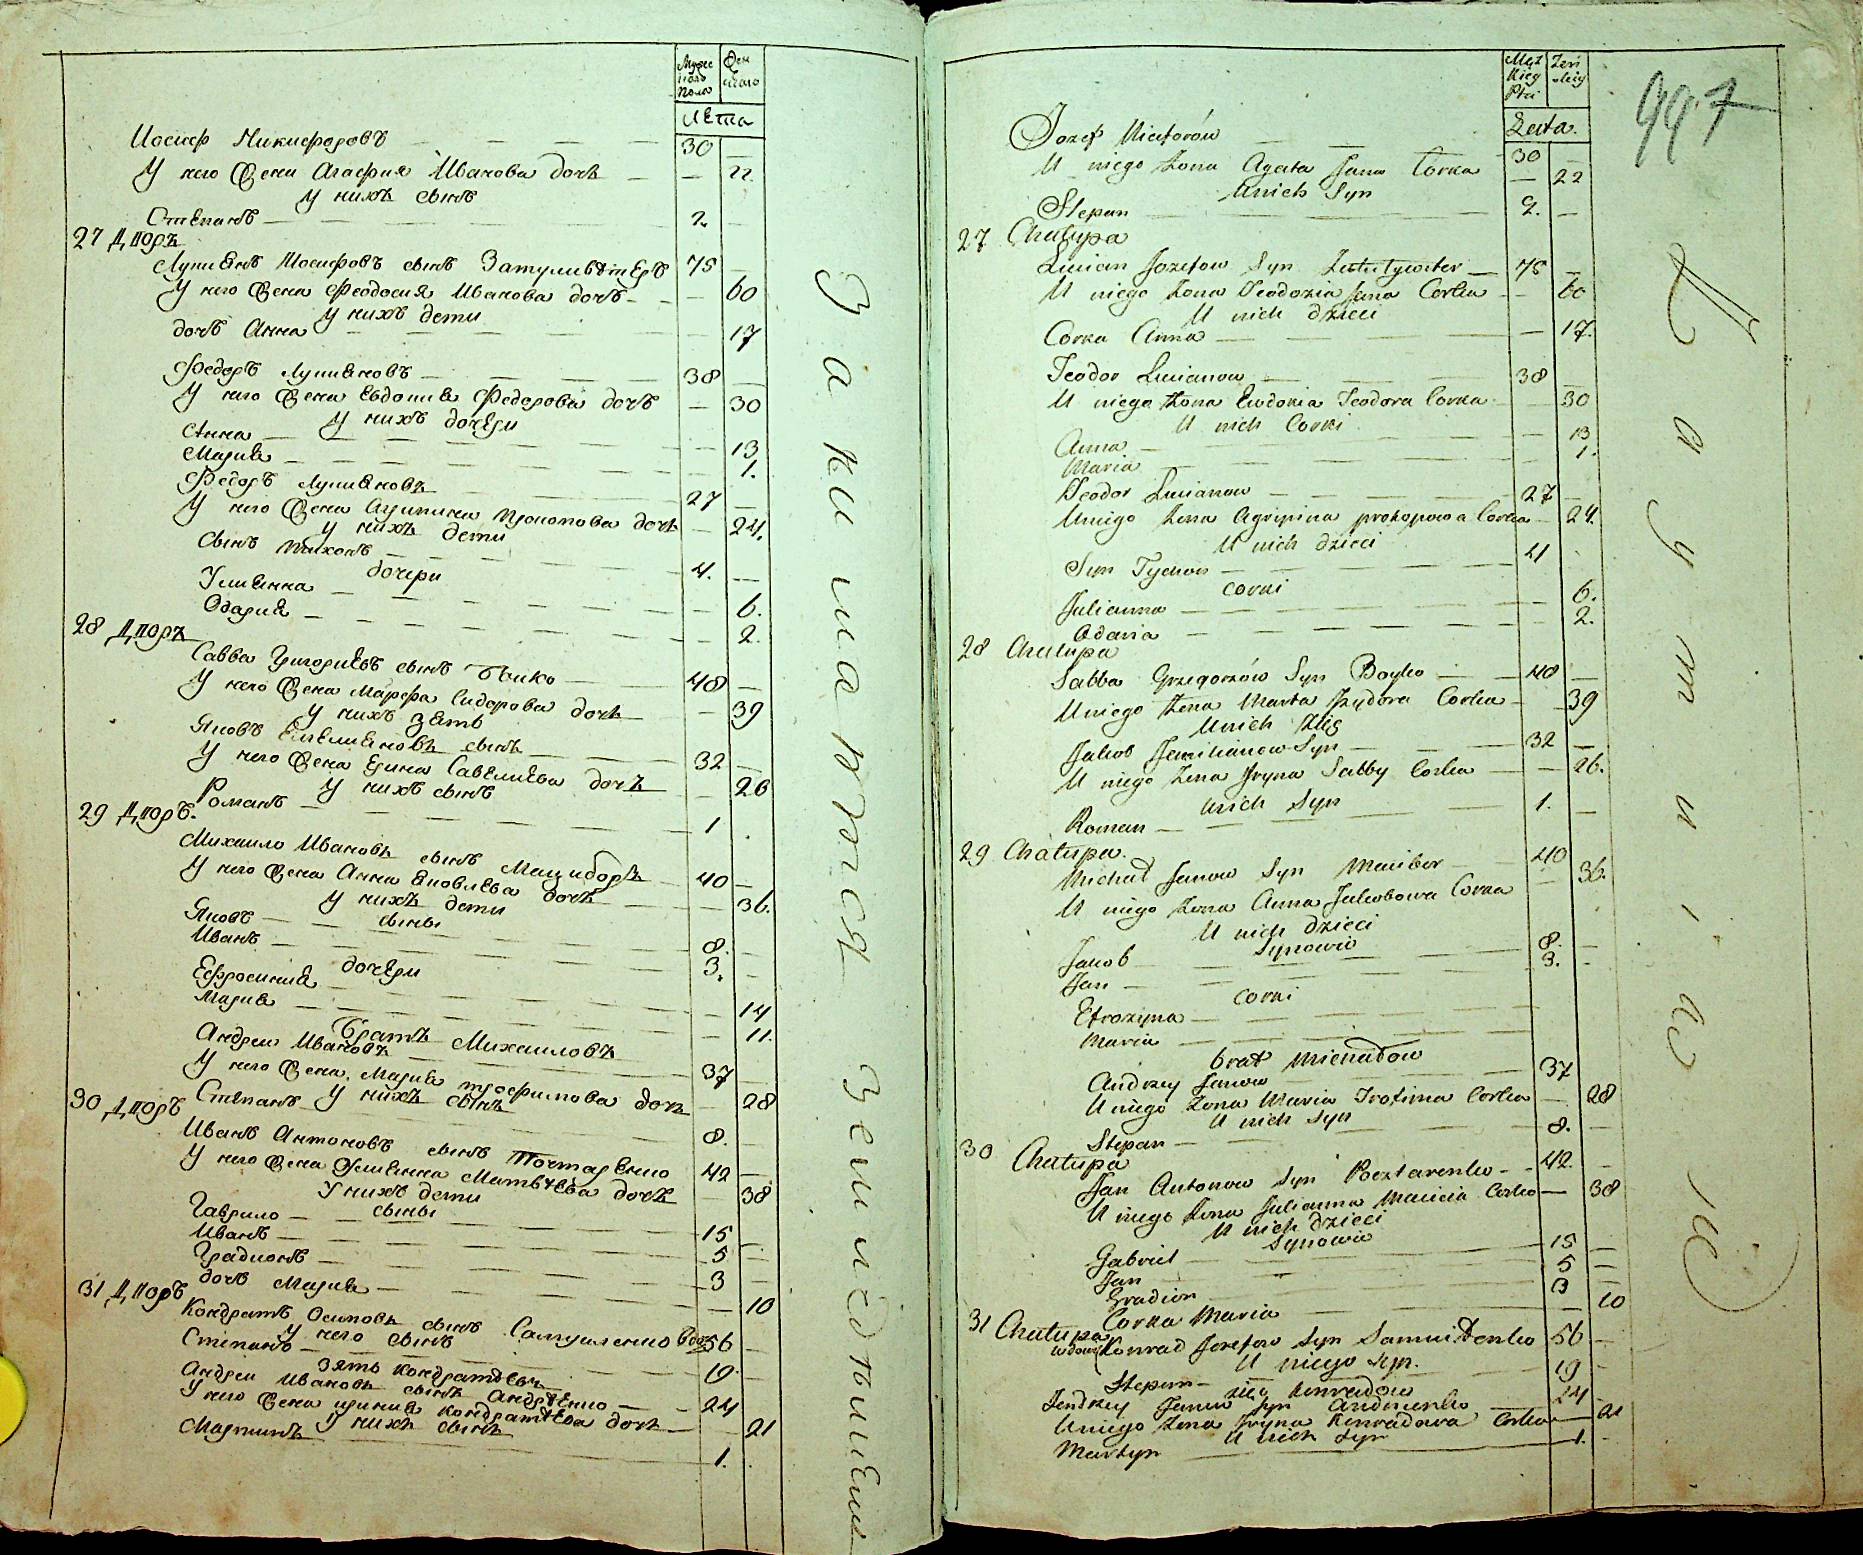 Мужес
ного
пола
Жен
скаго
Лѣта
Иосиф Никифоровъ — 30
У него Жена Агафия Иванова дочь — 22
У нихъ сынъ
Степанъ — 2
27 Дворъ
Лукиянъ Иосифовъ сынъ 75
У него Жена Феодосия Иванова дочь — 60
У нихъ дети
дочь Анна — 17
Федоръ Лукияновъ — 38
У него Жена Евдокия Федорова дочь — 30
У нихъ дочери
Анна — 13
Мария — 1.
Федоръ Лукияновъ 27
У него Жена Агрипина Прокопова дочь — 24.
У нихъ дети
сынъ Тихонъ — 4.
дочери
Улиянна — 6.
Одария — 2.
28 Дворъ
Савва Григориевъ сынъ Бойко — 48
У него Жена Марфа Сидорова дочь — 39
У нихъ зять
Яковъ Емелияновъ сынъ 32
У него Жена Ерина Савелиева дочь 26
У нихъ сынъ
Романъ — 1
29 Дворъ.
Михаило Ивановъ сынъ Мациборъ 40
У него Жена Анна Яковлева дочь 36.
У нихъ дети
сыны
Яковъ — 8.
Иванъ — 3.
дочери
Ефросиния — 14
Мария — 11.
Братъ Михаиловъ
Андреи Ивановъ 37
У него Жена Мария Трофимова дочь — 28
У нихъ сынъ
Степанъ 8.
30 Дворъ
Иванъ Антоновъ сынъ Почтаренко 42
У него Жена Улиянна Матвѣева дочь 38
У нихъ дети
сыны
Гаврило — 15
Иванъ — 5
Градионъ — 3
дочь Мария — 10
31 Дворъ
Кондратъ Осиповъ сынъ Самуиленко 56
У него сынъ
Степанъ — 19.
Зять Кондратовъ
Андреи Ивановъ сынъ Андрѣенко — 24
У него Жена Ирина Кондратѣева дочь — 21
У нихъ сынъ
Мартинъ 1.
Męz
kiey
Płci
Żeń
skiey
Lata.
997
Jozef Niceforów — 30
U niego Żona Agata Jana Corka — 22
U nich Syn
Stepan — 2.
27 Chałupa
Lucian Jozefow Syn — 75
U niego Żona Teodozia Jana Corka — 60
U nich dzieci
Corka Anna — 17.
Teodor Lucianow — 38
U niego Żona Ewdokia Teodora Corka — 30
U nich Corki
Anna — 13
Maria — 1.
Teodor Lucianow — 27
U niego Żona Agripina prokopowa Corka — 24.
U nich dzieci
Syn Tychon — 4
Corki
Julianna — 6.
Odaria — 2.
28 Chałupa
Sabba Grzegorzów Syn Boyko — 48
U niego Żona Marta Izydora Corka — 39
U nich Zięć
Jakob Jemilianow Syn — 32
U niego Żona Iryna Sabby Corka — 26.
U nich Syn
Roman — 1.
29 Chałupa.
Michał Janow Syn Macibor — 40
U niego Żona Anna Jakobowa Corka 36.
U nich dzieci
Synowie
Jakob — 8.
Jan — 3.
Corki
Efrozyna —
Maria —
brat Michałow
Andrzey Janow — 37
U niego Żona Maria Trofima Corka — 28
U nich Syn
Stepan — 8.
30 Chałupa
Jan Antonow Syn Pocztarenko — 42
U niego Żona Julianna Macieia Corka — 38
U nich dzieci
Synowie
Gabriel 15
Jan 5
Gradion 3
Corka Maria 10
31 Chałupa
Konrad Jozefow Syn Samuiłenko 56
U niego Syn.
Stepan — 19
Zięć Konradow
Jendrzey Janow Syn Andrieenko 24
U niego Żona Iryna Konradowa Corka — 21
U nich Syn
Martyn 1.